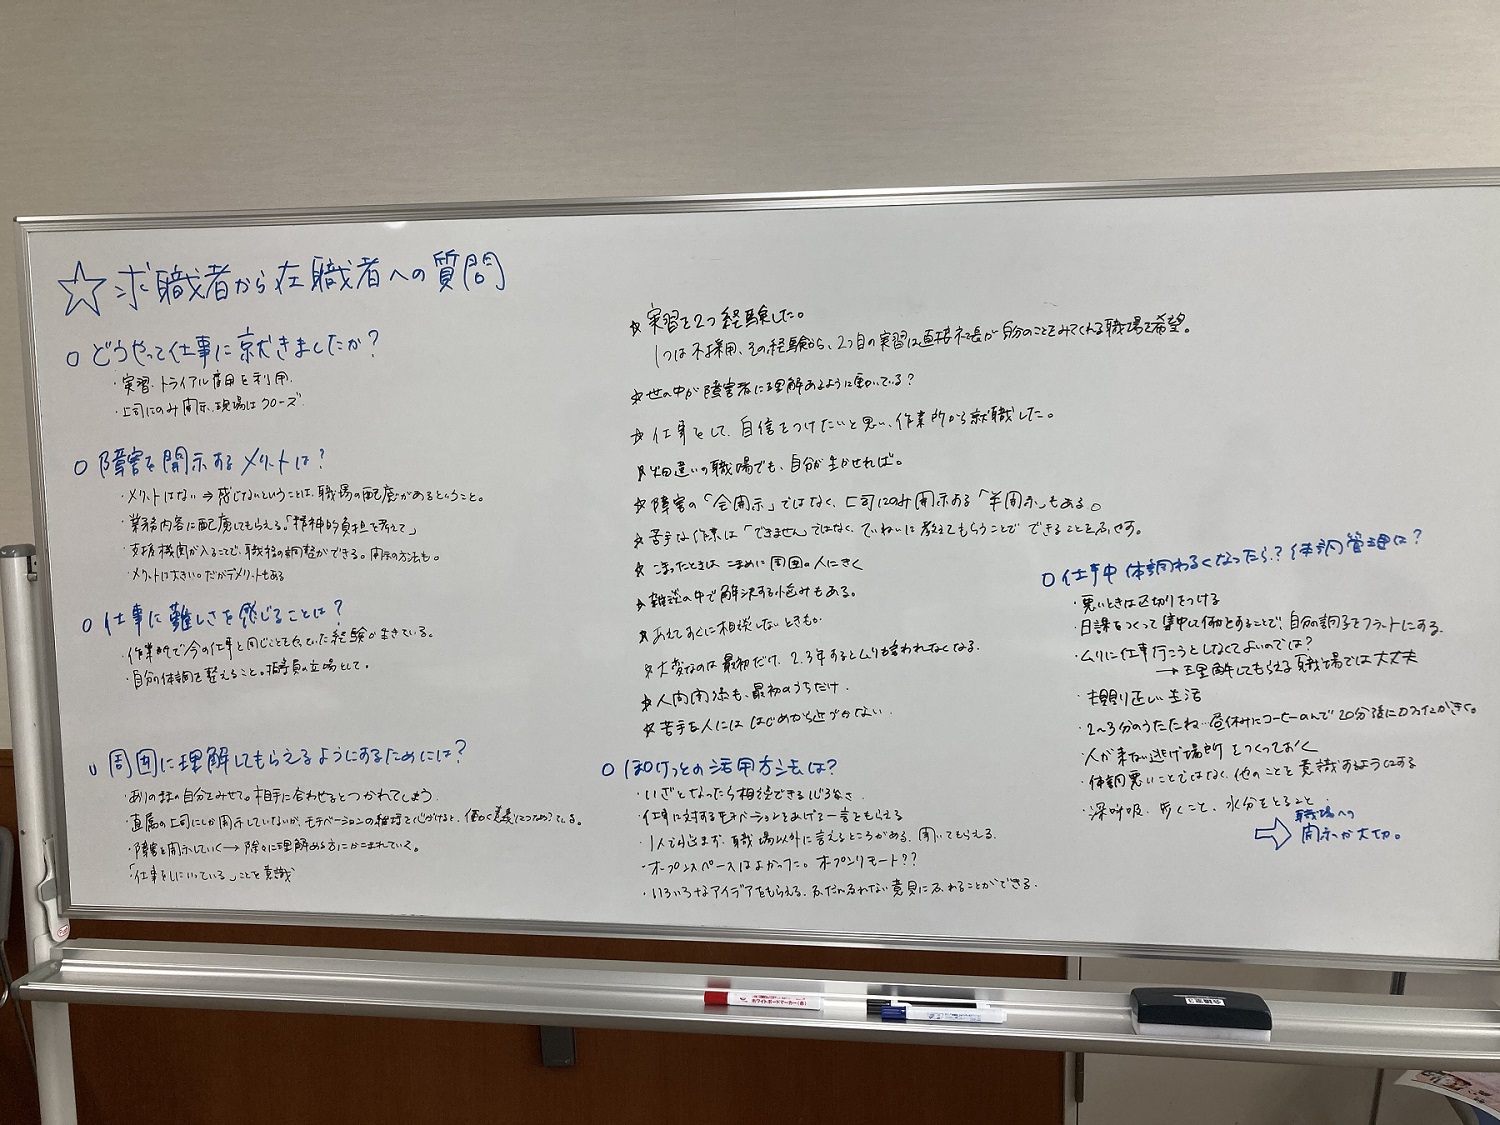 ☆求職者から在職者への質問
○ どうやって仕事に就きましたか？
・実習、トライアル雇用を利用
・上司にのみ開示、現場はクローズ
○ 障害を開示するメリットは？
・メリットはない ⇒ 感じないということは、職場の配慮があるということ。
・業務内容に配慮してもらえる。「精神的負担を考えて」
・支援機関が入ることで、職務の調整ができる。開示の方法も。
・メリットは大きい。だがデメリットもある
○ 仕事に難しさを感じることは？
・作業所で今の仕事と同じことをしていた経験が生きている。
・自分の体調を整えること。指導員の立場として。
○ 周囲に理解してもらえるようにするためには？
・ありのままの自分をみせて。相手に合わせるとつかれてしまう
・直属の上司にしか開示していないが、モチベーションの維持を心がけると、働く意義につながっている。
・障害を開示していく→ 除々に理解ある方にかこまれていく。
「仕事をしにいっている」ことを意識
☆ 実習を2つ経験した。
1つは不採用、その経験から、2つ目の実習は直接社長が自分のことをみてくれる職場を希望。
☆ 世の中が障害者に理解あるように動いている？
☆ 仕事をして、自信をつけたいと思い、作業所から就職した。
☆ 畑違いの職場でも、自分が生かせれば。
☆ 障害の「全開示」ではなく、上司にのみ開示する「半開示」もある。
☆ 苦手な作業は「できません」ではなく、ていねいに教えてもらうことで できることをふやす。
☆ こまったときは こまめに周囲の人にきく
☆ 雑談の中で解決する悩みもある。
☆ あえてすぐに相談しないときも
☆ 大変なのは最初だけ、2.3年するとムリも言われなくなる.
☆ 人間関係も、最初のうちだけ.
☆ 苦手な人には はじめから近づかない.
○ ぽけっとの活用方法は？
・いざとなったら相談できる心強さ
・仕事に対するモチベーションをあげる一言をもらえる
・1人で悩まず、職場以外に言えるところがある、聞いてもらえる.
・オープンスペースはよかった。オープンリモート??
・いろいろなアイデアをもらえる. ふだんふれない意見にふれることができる.
○ 仕事中 体調わるくなったら？体調管理は？
・悪いときは区切りをつける
・日課をつくって集中して何かをすることで、自分の調子をフラットにする.
・ムリに仕事行こうとしなくてよいのでは？
→ 理解してもらえる職場では大丈夫
・規則正しい生活
・2〜3分のうたたね…昼休みにコーヒーのんで20分後にカフェインがきく。
・人が来ない逃げ場所をつくっておく
・体調悪いことではなく、他のことを意識するようにする
・深呼吸、歩くこと、水分をとること
⇨ 職場への
開示が大切。
ホワイトボードマーカー(赤)